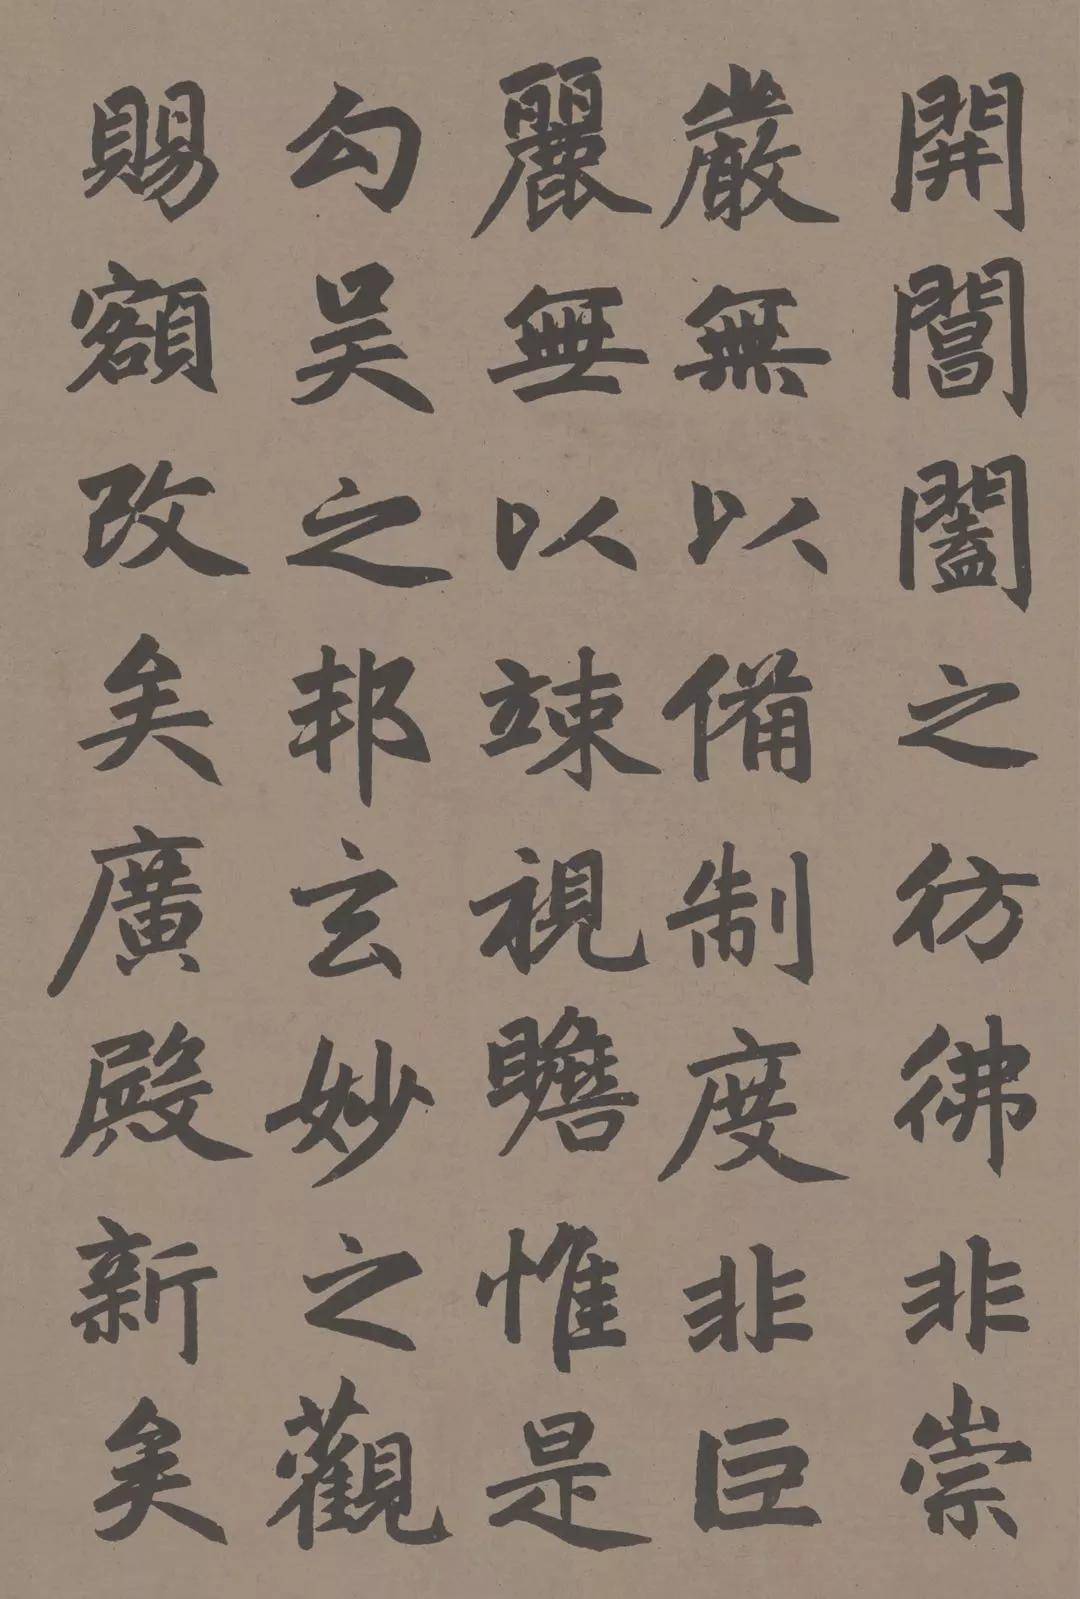 開閶闔之彷彿非崇
嚴無以備制度非巨
麗無以竦視瞻惟是
勾吴之邦玄妙之觀
賜額改矣廣殿新矣